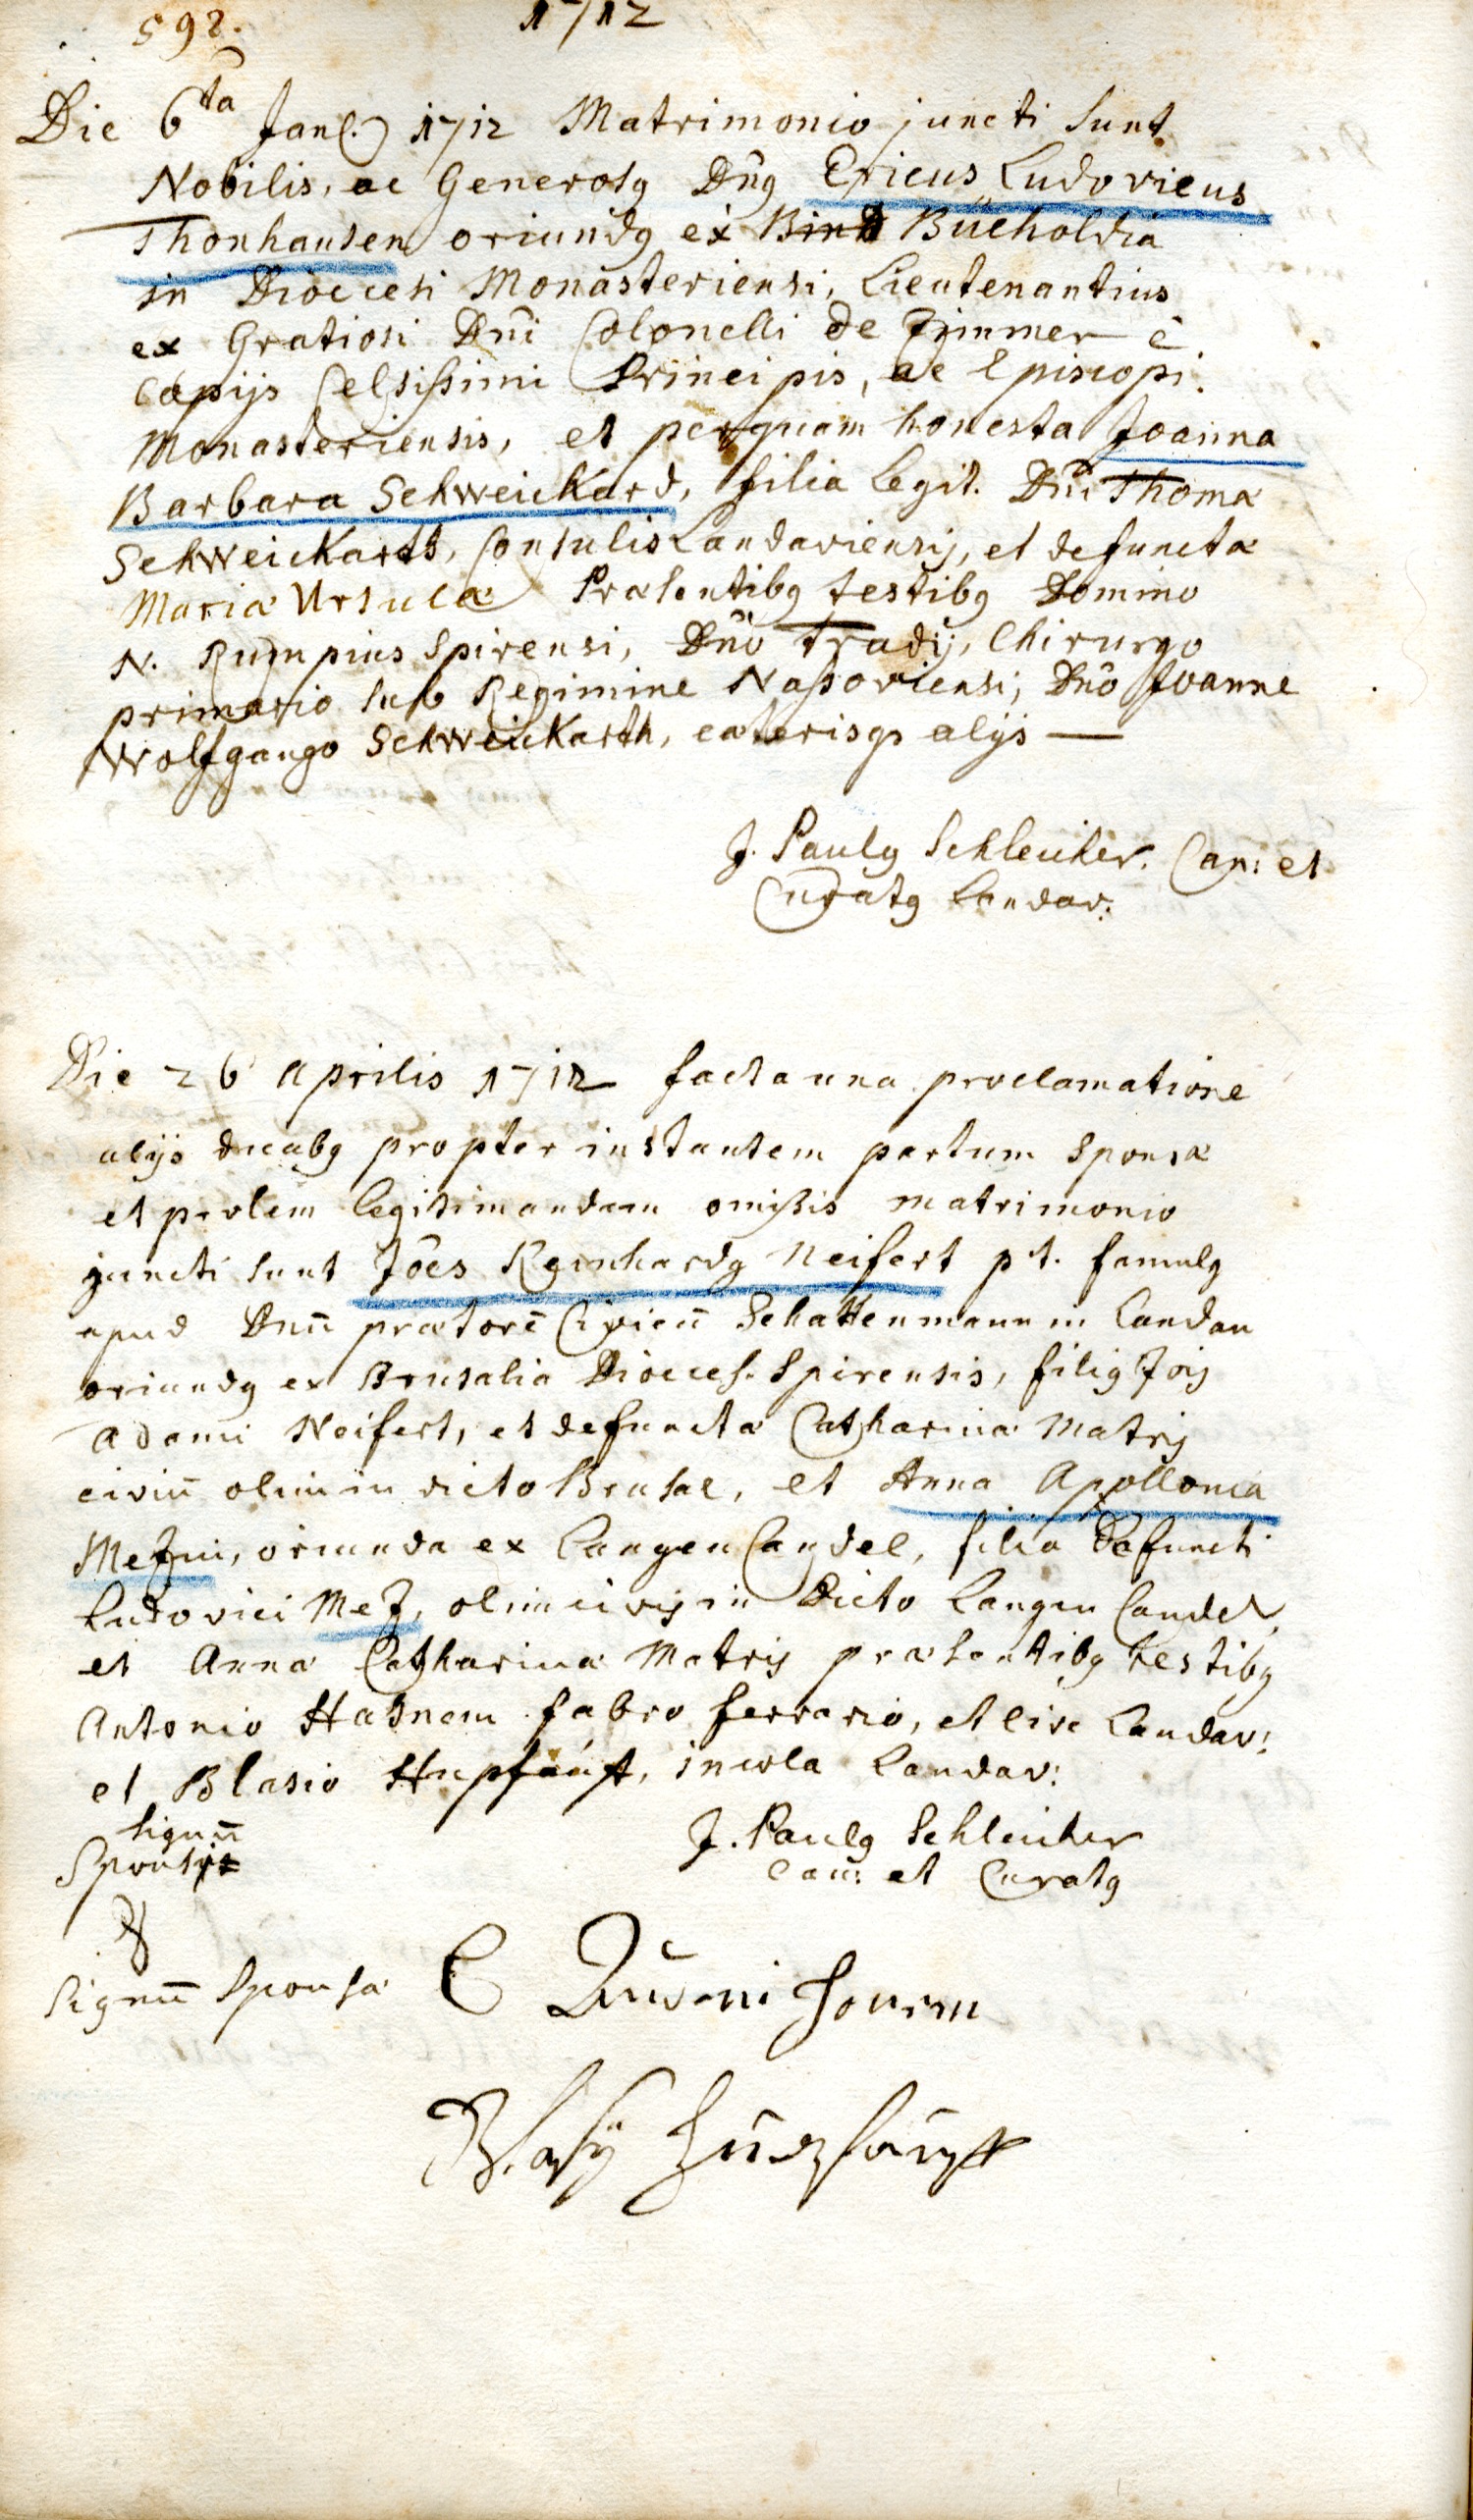 592.
1712
Die 6ta Jan. 1712 Matrimonio juncti sunt
Nobilis, ac Generosq Dñq Ericus Ludovicus
Thonhausen oriundq ex Bind Bücholdia
in Dioecesi Monasteriensi, Lieutenantius
ex Gratiosi Dñi Colonelli de Zimmer è
Copijs Celsissimi Principis, ac Episcopi
Monasteriensis, et perquam honesta Joanna
Barbara Schweickard, filia legit. Dñi Thomæ
Schweickardt, Consulis Landaviensis, et defunctæ
Mariæ Ursulæ Præsentibq testibq Domino
N. Rumpius Spirensi, Dño Tradij, Chirurgo
primario sub Regimine Nassoviensi, Dño Joanne
Wolfgango Schweickarth, cæterisqs alijs —
J. Paulq Schleicher. Can: et
Curatq Landav:
Die 26 Aprilis 1712 facta una proclamatione
alijs duabq propter instantem partum sponsæ
et prolem legitimandam omissis matrimonio
juncti sunt Jões Reinhardq Neifert p.t. famulq
apud Dnū prætorē Civicū Schattenmann in Landau
oriundq ex Brusalia Dioeces. Spirensis, filiq Jois
Adami Neifert, et defunctæ Catharinæ Matris
civiū olim in dicto Brusal, et Anna Apollonia
Mezin, oriunda ex Langen Candel, filia Defuncti
Ludovici Mez, olim civis in Dicto Langen Candel,
et Annæ Catharinæ Matris præsentibq testibq
Antonio Hasnem fabro ferrario, et cive Landav:
et Blasio Hupfauft, incola Landav:
Signū
Sponsi
J. Paulq Schleicher
Can: et Curatq
Signū Sponsæ